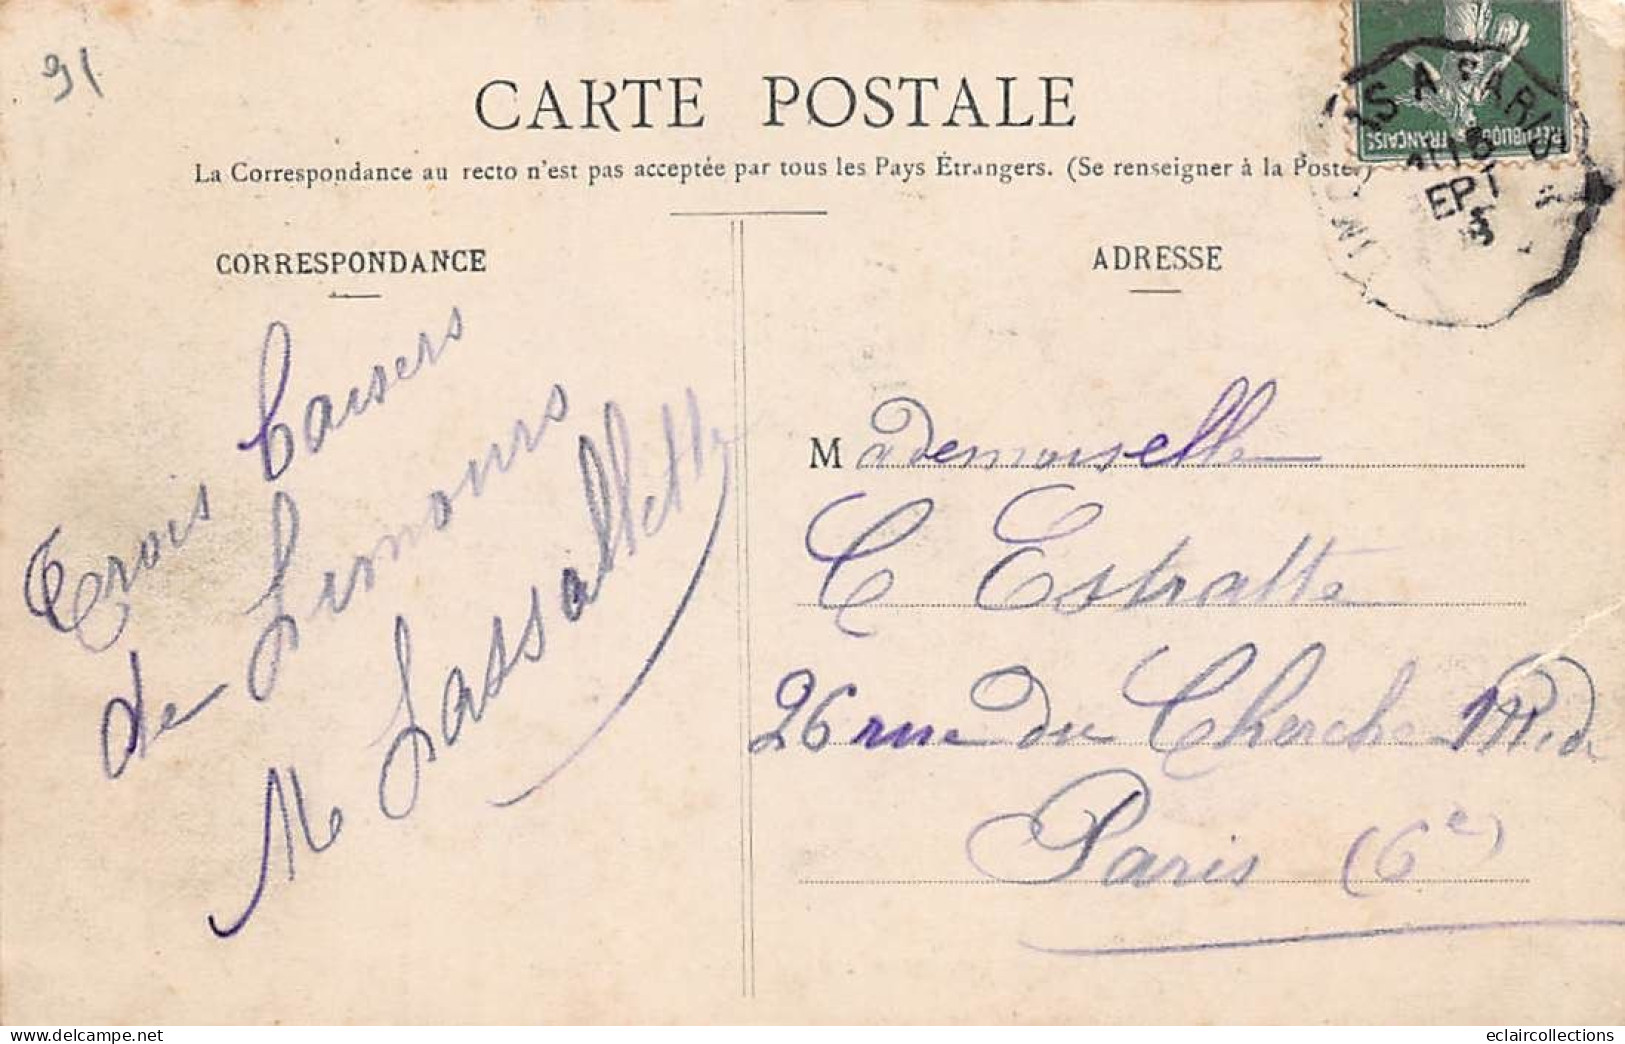 91
CARTE POSTALE
La Correspondance au recto n'est pas acceptée par tous les Pays Étrangers. (Se renseigner à la Poste.)
RÉPUBLIQUE FRANÇAISE
A PARIS
SEPT
CORRESPONDANCE
Trois Baisers
de Limours
M Lassallette
ADRESSE
Mademoiselle
C Estratte
26 rue du Cherche Midi
Paris (6e)
delcampe.net
eclaircollections